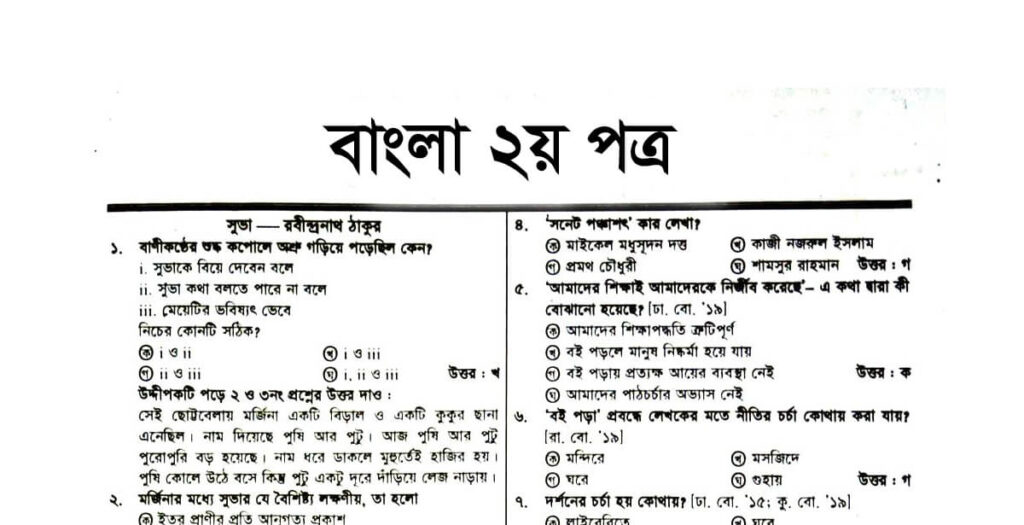 বাংলা ২য় পত্র
সুভা — রবীন্দ্রনাথ ঠাকুর
১. বাণীকণ্ঠের শুষ্ক কপোলে অশ্রু গড়িয়ে পড়েছিল কেন?
i. সুভাকে বিয়ে দেবেন বলে
ii. সুভা কথা বলতে পারে না বলে
iii. মেয়েটির ভবিষ্যৎ ভেবে
নিচের কোনটি সঠিক?
ⓚ i ও ii ⓚ i ও iii
ⓖ ii ও iii ⓖ i, ii ও iii উত্তর : খ
উদ্দীপকটি পড়ে ২ ও ৩নং প্রশ্নের উত্তর দাও :
সেই ছোট্টবেলায় মর্জিনা একটি বিড়াল ও একটি কুকুর ছানা
এনেছিল। নাম দিয়েছে পুষি আর পুটু। আজ পুষি আর পুটু
পুরোপুরি বড় হয়েছে। নাম ধরে ডাকলে মুহূর্তেই হাজির হয়।
পুষি কোলে উঠে বসে কিন্তু পুটু একটু দূরে দাঁড়িয়ে লেজ নাড়ায়।
২. মর্জিনার মধ্যে সুভার যে বৈশিষ্ট্য লক্ষণীয়, তা হলো
ⓚ ইতর প্রাণীর প্রতি আনুগত্য প্রকাশ
৪. 'সনেট পঞ্চাশৎ' কার লেখা?
ⓚ মাইকেল মধুসূদন দত্ত ⓚ কাজী নজরুল ইসলাম
ⓖ প্রমথ চৌধুরী ⓖ শামসুর রাহমান উত্তর : গ
৫. 'আমাদের শিক্ষাই আমাদেরকে নির্জীব করেছে'– এ কথা দ্বারা কী
বোঝানো হয়েছে? [ঢা. বো. '১৯]
ⓚ আমাদের শিক্ষাপদ্ধতি ত্রুটিপূর্ণ
ⓚ বই পড়লে মানুষ নিষ্কর্মা হয়ে যায়
ⓖ বই পড়ায় প্রত্যক্ষ আয়ের ব্যবস্থা নেই উত্তর : ক
ⓖ আমাদের পাঠচর্চার অভ্যাস নেই
৬. 'বই পড়া' প্রবন্ধে লেখকের মতে নীতির চর্চা কোথায় করা যায়?
[রা. বো. '১৯]
ⓚ মন্দিরে ⓚ মসজিদে
ⓖ ঘরে ⓖ গুহায় উত্তর : গ
৭. দর্শনের চর্চা হয় কোথায়? [ঢা. বো. '১৫; কু. বো. '১৯]
ⓚ লাইব্রেরিতে ⓚ ঘরে